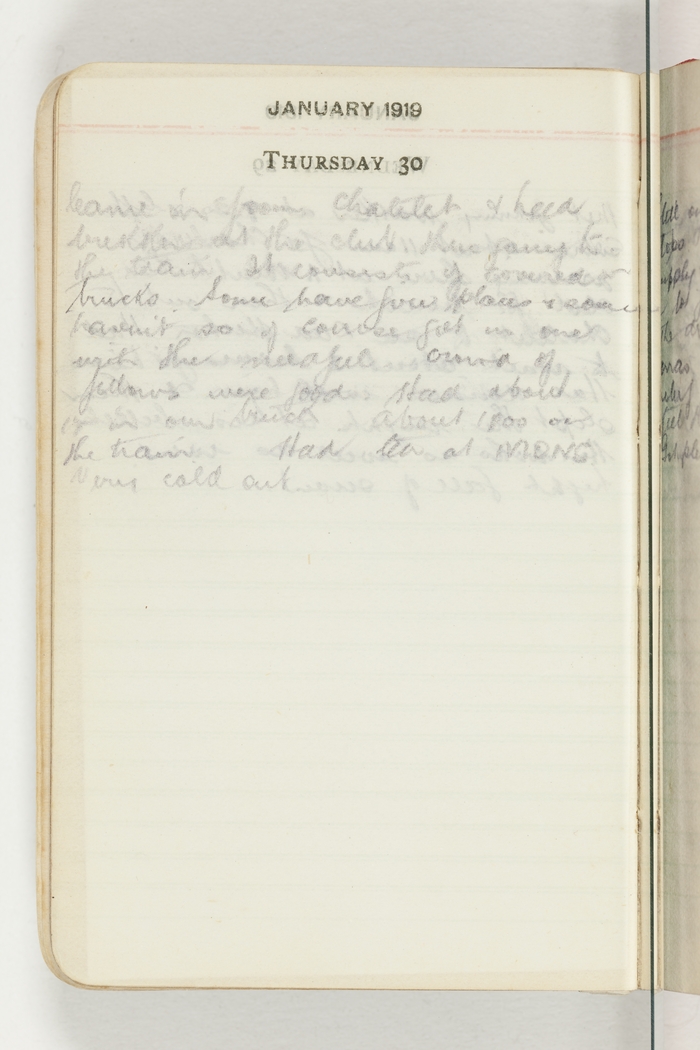 JANUARY 1919
THURSDAY 30
Came in from Chatelet & had
brekker at the club then going to
the train. It consists of covered
trucks. Some have fire places & some
havn't so of course got in one
with the needful. crowd of
fellows were good. Had about
in our truck about 1800 on
the train. Had tea at MONS
Very cold out.